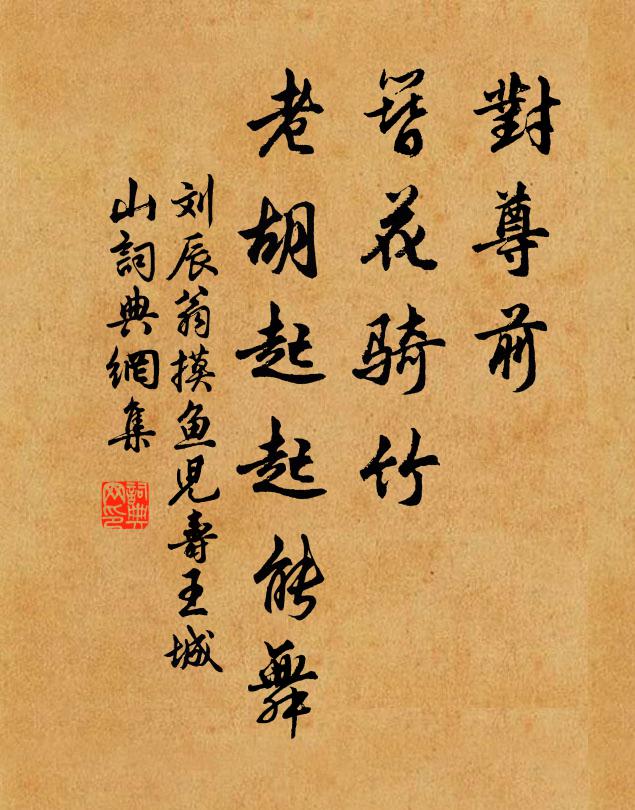 對尊前
簪花騎竹
老胡起起能舞
刘辰翁摸魚児壽王城
山詞典網集
詞典網印